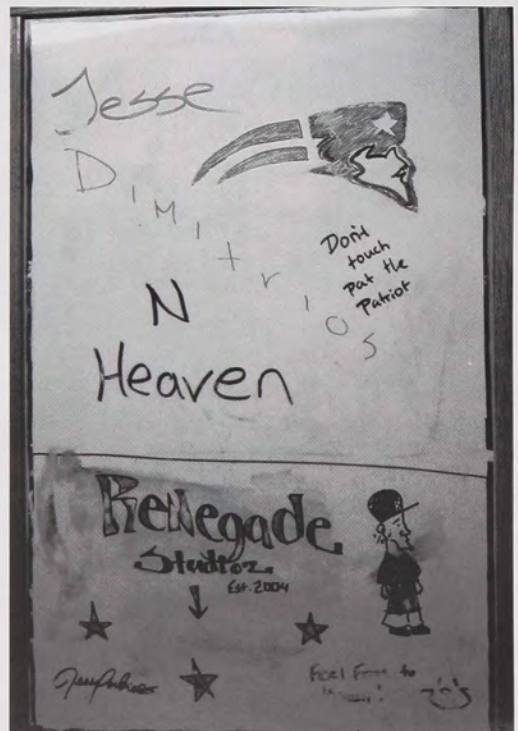 Jesse
Dimitrios
Don't
touch
pat the
Patriot
N
Heaven
Renegade
Studioz
Est. 2004
Feel Free to